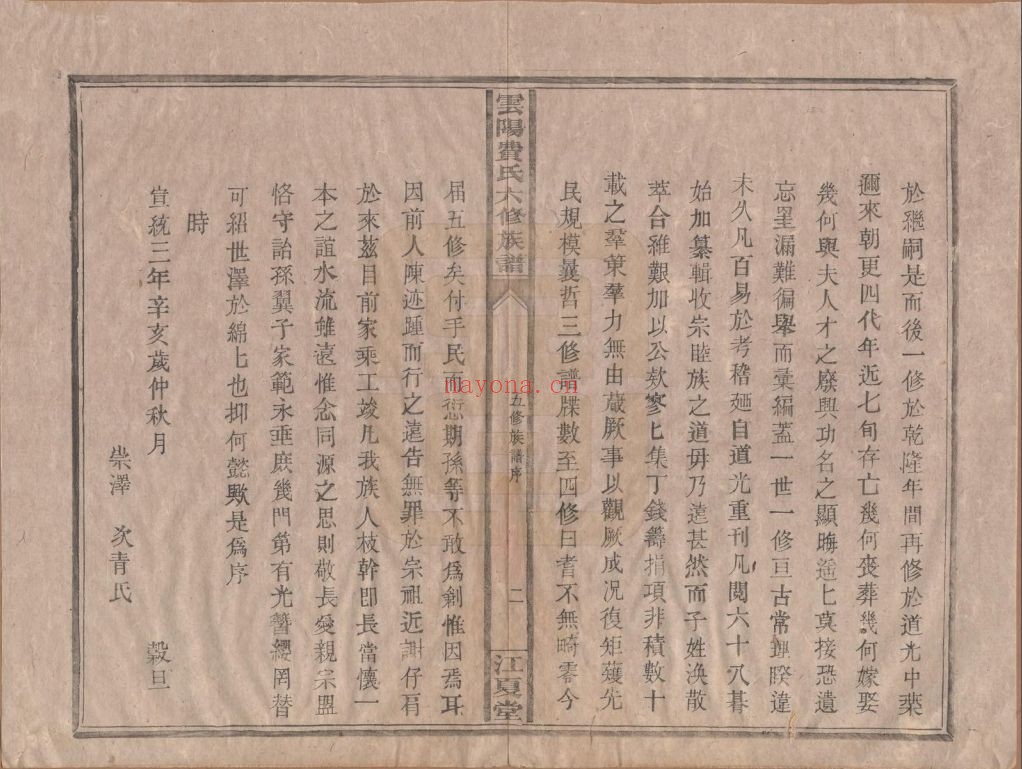 於繼嗣是而後一修於乾隆年間再修於道光中葉
邇來朝更四代年近七旬存亡幾何喪葬幾何嫁娶
幾何與夫人才之廢興功名之顯晦遥匕莫接恐遺
忘罣漏難徧舉而彙編蓋一世一修亘古常理睽違
未久凡百易於考稽廼自道光重刊凡閱六十八碁
始加纂輯收宗睦族之道毋乃遠甚然而子姓渙散
萃合雖艱加以公欵寥匕集丁錢籌捐項非積數十
載之羣策羣力無由蕆厥事以觀厥成况復矩矱先
民規模曩哲三修譜牒數至四修曰耆不無畸零今
雲陽費氏六修族譜
五修族譜序
二
江夏堂
屆五修矣付手民而愆期孫等不敢爲創惟因焉耳
因前人陳迹踵而行之遠告無罪於宗祖近謝仔肩
於來兹目前家乘工竣凡我族人枝幹即長當懷一
本之誼水流雖遠惟念同源之思則敬長愛親宗盟
恪守詒孫翼子家範永垂庶幾門第有光簪纓罔替
可紹世澤於綿匕也抑何懿歟是爲序
時
宣統三年辛亥歲仲秋月
崇澤 次青氏 穀旦
nayona.cn